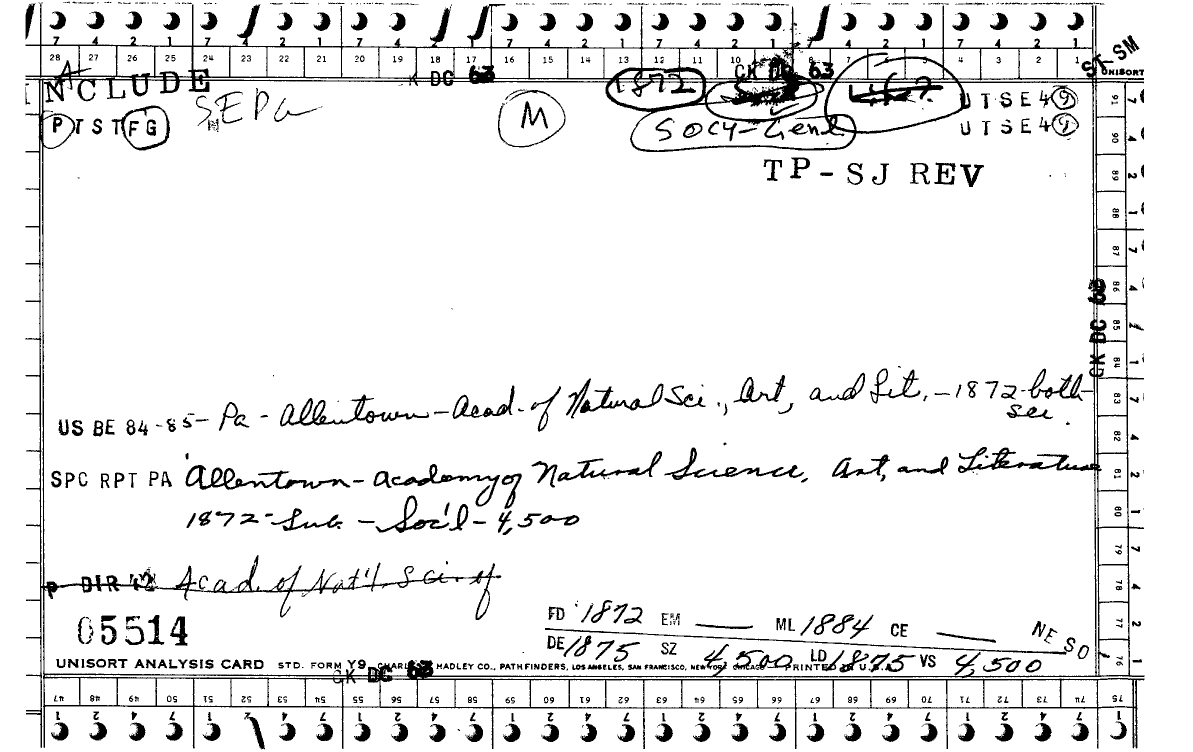 7 4 2 1 7 4 2 1 7 4 2 1 7 4 2 1 7 4 2 1 7 4 2 1 7 4 2 1
28 27 26 25 24 23 22 21 20 19 18 17 16 15 14 13 12 11 10 9 8 7 6 5 4 3 2 1
ST-SM
UNISORT
CK DC 63
CK DC 63
INCLUDE
A
1872
UTSE4 9
P T S T F G
SEPa
M
Socy-Genl
UTSE4 9
TP-SJ REV
CK DC 63
US BE 84-85- Pa - Allentown - Acad. of Natural Sci., Art, and Lit. - 1872-both
sci.
SPC RPT PA Allentown - Academy of Natural Science, Art, and Literature
1872 - Sub. - Soc'l - 4,500
P DIR 42 Acad. of Nat'l Sci. of
05514
FD 1872 EM — ML 1884 CE — NE SO
DE 1875 SZ 4,500 LD 1875 VS 4,500
UNISORT ANALYSIS CARD STD. FORM Y9 CHARLES R. HADLEY CO., PATHFINDERS, LOS ANGELES, SAN FRANCISCO, NEW YORK, CHICAGO—PRINTED IN U.S.A.
CK DC 63
91 90 89 88 87 86 85 84 83 82 81 80 79 78 77 76
7 4 2 1 7 4 2 1 7 4 2 1 7 4 2 1
47 48 49 50 51 52 53 54 55 56 57 58 59 60 61 62 63 64 65 66 67 68 69 70 71 72 73 74 75
1 2 4 7 1 2 4 7 1 2 4 7 1 2 4 7 1 2 4 7 1 2 4 7 1 2 4 7 1